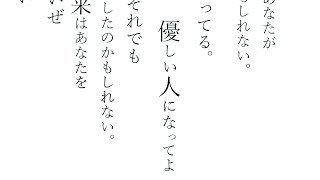 あなたが
もしれない。
ってる。
優しい人になってよ
それでも
したのかもしれない。
来はあなたを
いぜ